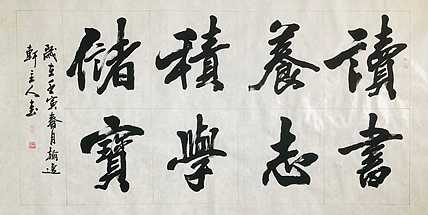 讀書
養志
積學
儲寶
歲在壬寅春月翰逸
軒主人